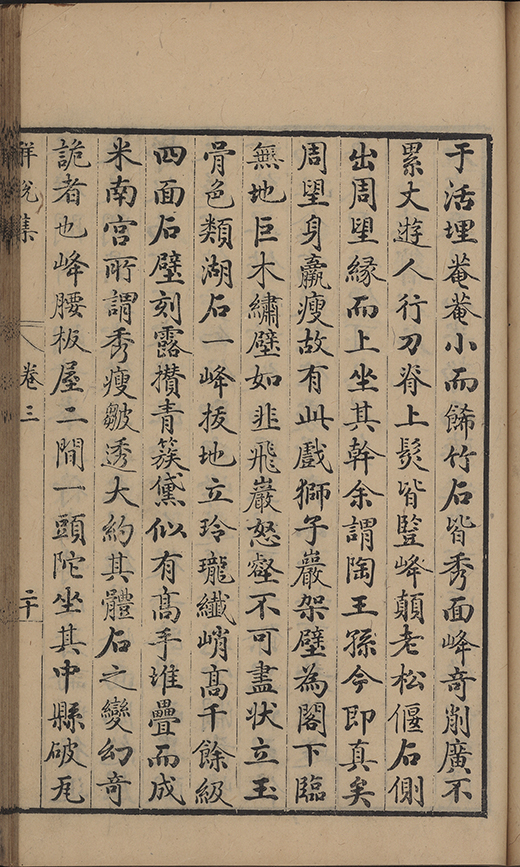 于活埋菴菴小而餙竹石皆秀面峰奇削廣不
累丈遊人行刀脊上髮皆豎峰顛老松偃石側
出周望緣而上坐其幹余謂陶王孫今即真矣
周望身羸瘦故有此戲獅子巖架壁為閣下臨
無地巨木繡壁如韭飛巖怒壑不可盡状立玉
骨色類湖石一峰拔地立玲瓏纖峭高千餘級
四面石壁刻露攢青簇黛似有高手堆疊而成
米南宮所謂秀瘦皺透大約其體石之變幻奇
詭者也峰腰板屋二間一頭陀坐其中縣破瓦
卷三
二十